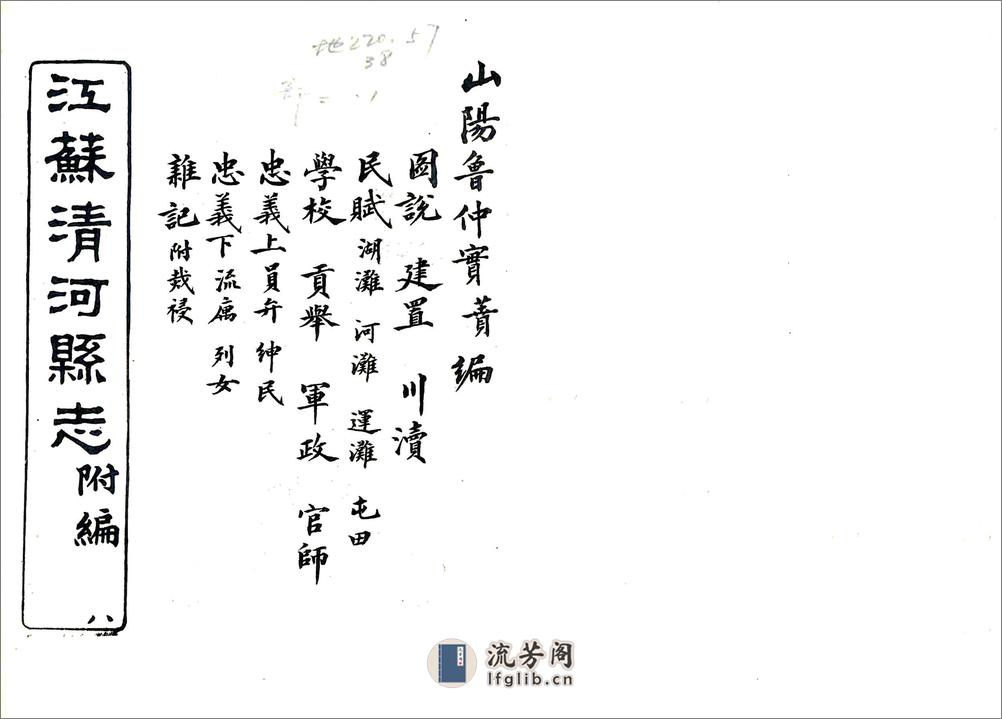 地220.57
38
山陽魯仲實蕡編
圖說 建置 川瀆
民賦 湖灘 河灘 運灘 屯田
學校 貢舉 軍政 官師
忠義上員弁 紳民
忠義下流寓 列女
雜記附烖祲
江蘇清河縣志附編 八
流芳阁
lfglib.cn